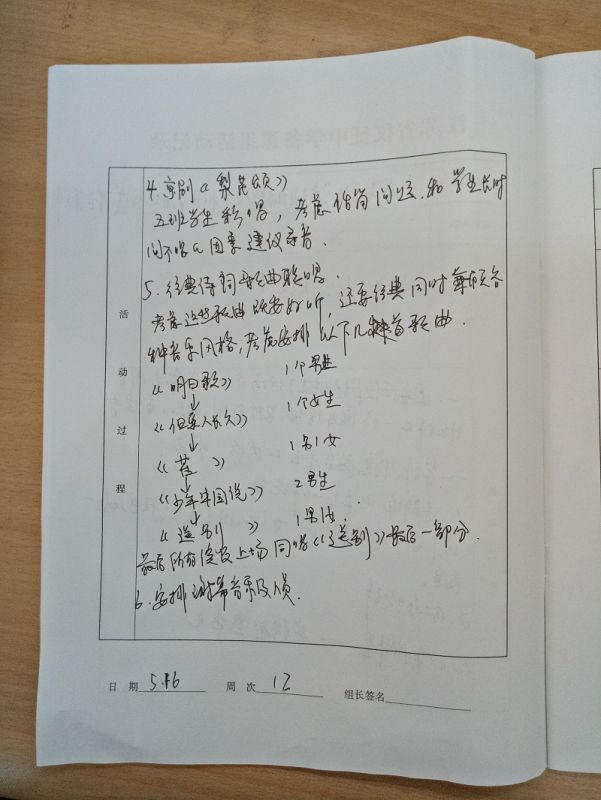 4. 京剧《梨花颂》
五班学生彩唱，考虑话筒问题和学生长时
间不唱的因素建议录音．
5. 经典诗词歌曲联唱．
考虑这些歌曲既要好听，还要经典同时兼顾各
种音乐风格，考虑安排以下几首歌曲．
《明日歌》 1个男生
↓
《但愿人长久》 1个女生
↓
《苔》 1男1女
↓
《少年中国说》 2男生
↓
《送别》 1男1女．
最后所有演员上场同唱《送别》最后一部分．
6. 安排音乐及人员．
活动过程
日 期 5.16 周 次 12 组长签名